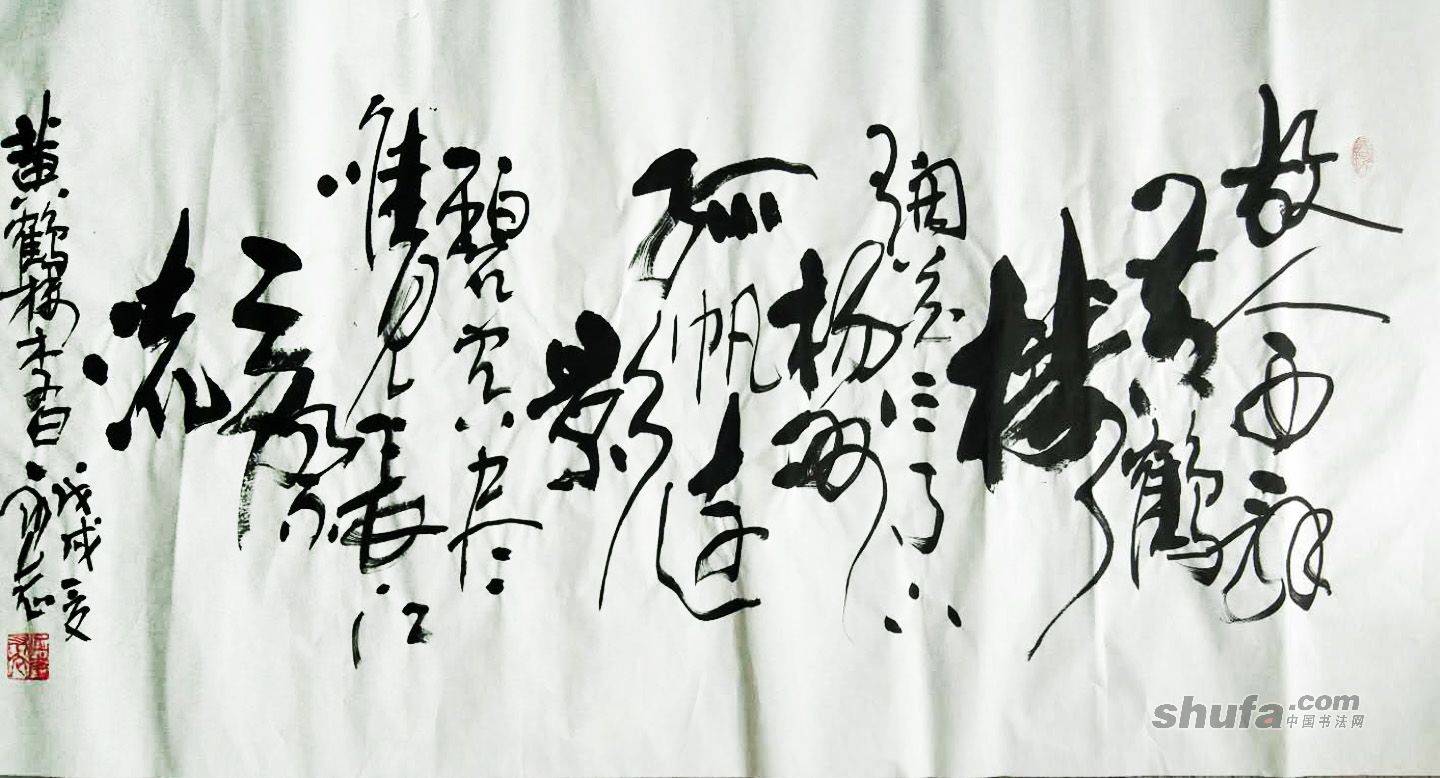 故人西辞
黄鶴
楼
烟花三月下
杨州
孤帆远
影
碧空尽
唯见長江
天际
流
戊戌夏
黄鶴楼李白
shufa.com
中国书法网